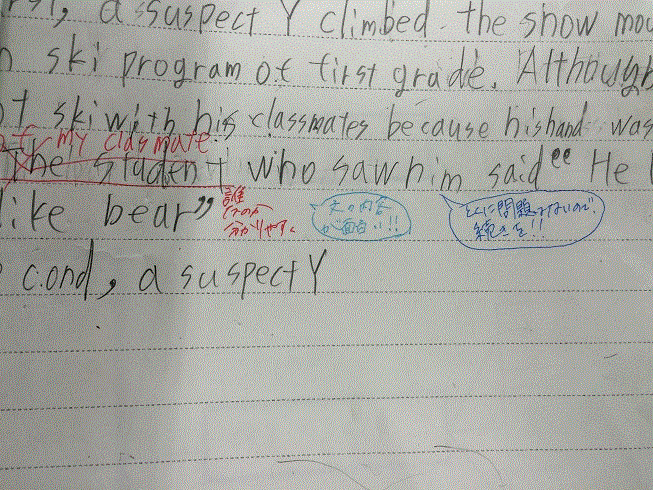 , a suspect Y climbed the snow
ski program of first grade. Although
ski with his classmates because his hand was
my clasmate.
The student who saw him said “ He
like bear”
誰
分かりやすく
夫の内容
が面白い!!
とくに問題ないので、
続きを!!
cond, a suspect Y